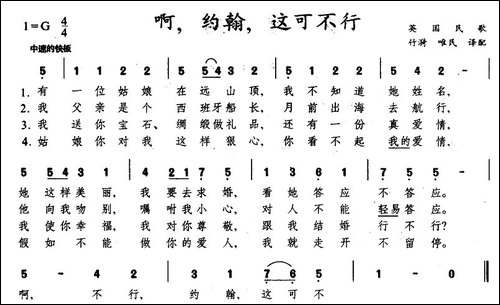 1=G 4/4
啊，约翰，这可不行
英国民歌
竹漪 唯民 译配
中速的快板
5 | 1 1 2 2 | 5 5 4 3 2 | 1 1 2 2 | 5 - - 5
1. 有 一位姑娘 在远山顶，我不知道 她姓名，
2. 我 父亲是个 西班牙船长，月前出海 去航行，
3. 我 送你宝石、绸缎做礼品，还有一份 真爱情，
4. 姑 娘你对我 这样狠心，你看不起 我的爱情，
她这样美丽，我要去求婚，看她答应 不答应。
他向我吻别，嘱咐我小心，对人不能 轻易答应。
我使你幸福，我对你尊敬，跟我结婚 行不行？
假如不能 做你的爱人，我就走开 不留停。
5 - 4 2 | 3 - 1 2 | 3 1 7 6 5 | 1 - 0 ‖
啊， 不行， 约翰，这可不 行！